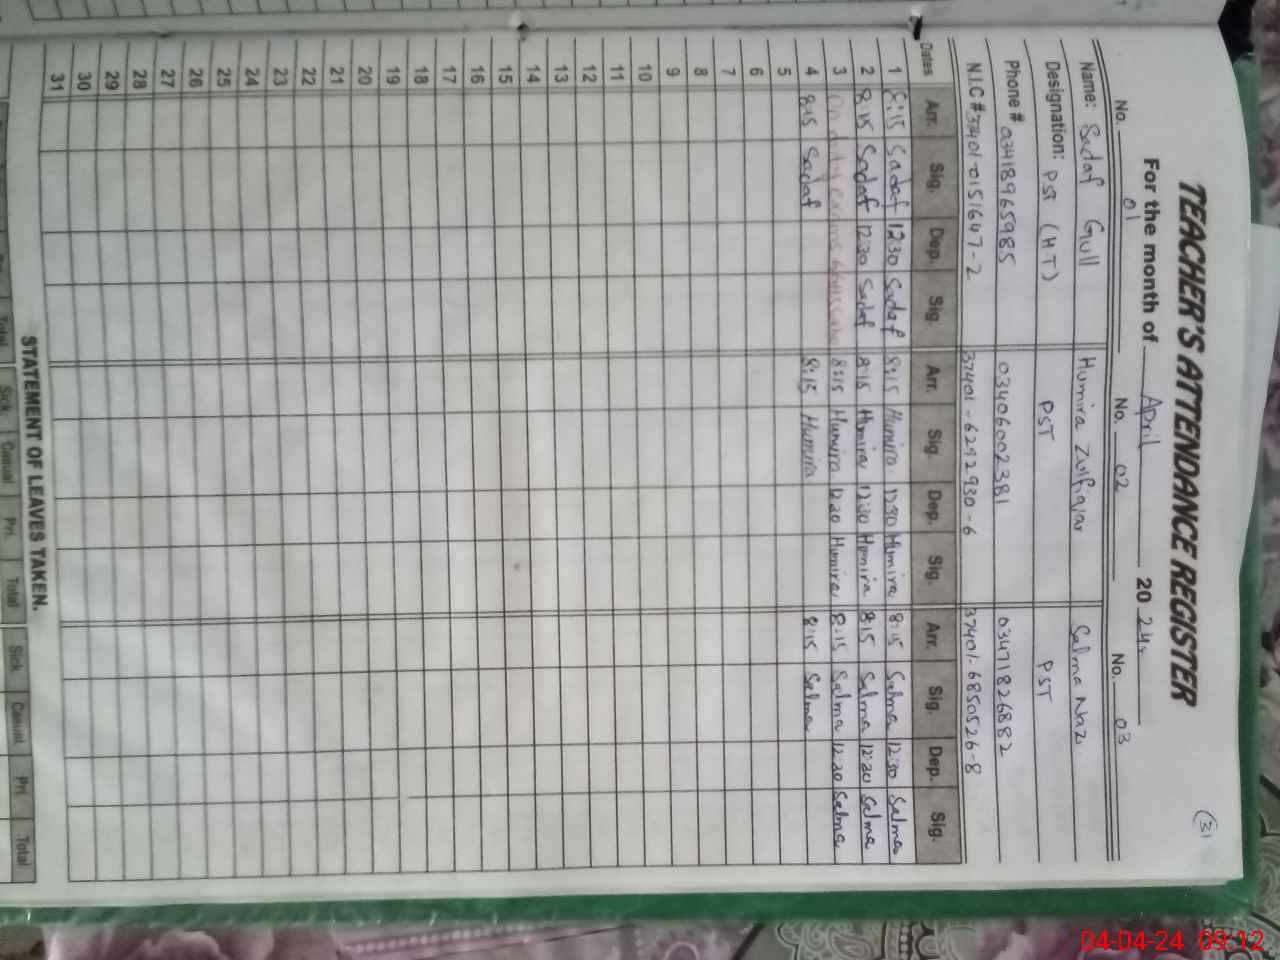 TEACHER'S ATTENDANCE REGISTER
(31
For the month of April 2024
No. 01 No. 02 No. 03
Name: Sadaf Gull Humira Zulfiqar Salma Naz
Designation: PST (HT) PST PST
Phone # 03418965985 03406002381 03471826882
N.I.C # 37401-0151647-2 37401-6292930-6 37401-6850526-8
Dates Arr. Sig. Dep. Sig. Arr. Sig. Dep. Sig. Arr. Sig. Dep. Sig.
1 8:15 Sadaf 12:30 Sadaf 8:15 Humira 12:30 Humira 8:15 Salma 12:30 Salma
2 8:15 Sadaf 12:30 Sadaf 8:15 Humira 12:30 Humira 8:15 Salma 12:30 Salma
3 On duty 8:15 Humira 12:30 Humira 8:15 Salma 12:30 Salma
4 8:15 Sadaf 8:15 Humira 8:15 Salma
5
6
7
8
9
10
11
12
13
14
15
16
17
18
19
20
21
22
23
24
25
26
27
28
29
30
31
STATEMENT OF LEAVES TAKEN.
Total Sick Casual Pri. Total Sick Casual Pri Total
04-04-24 09:12